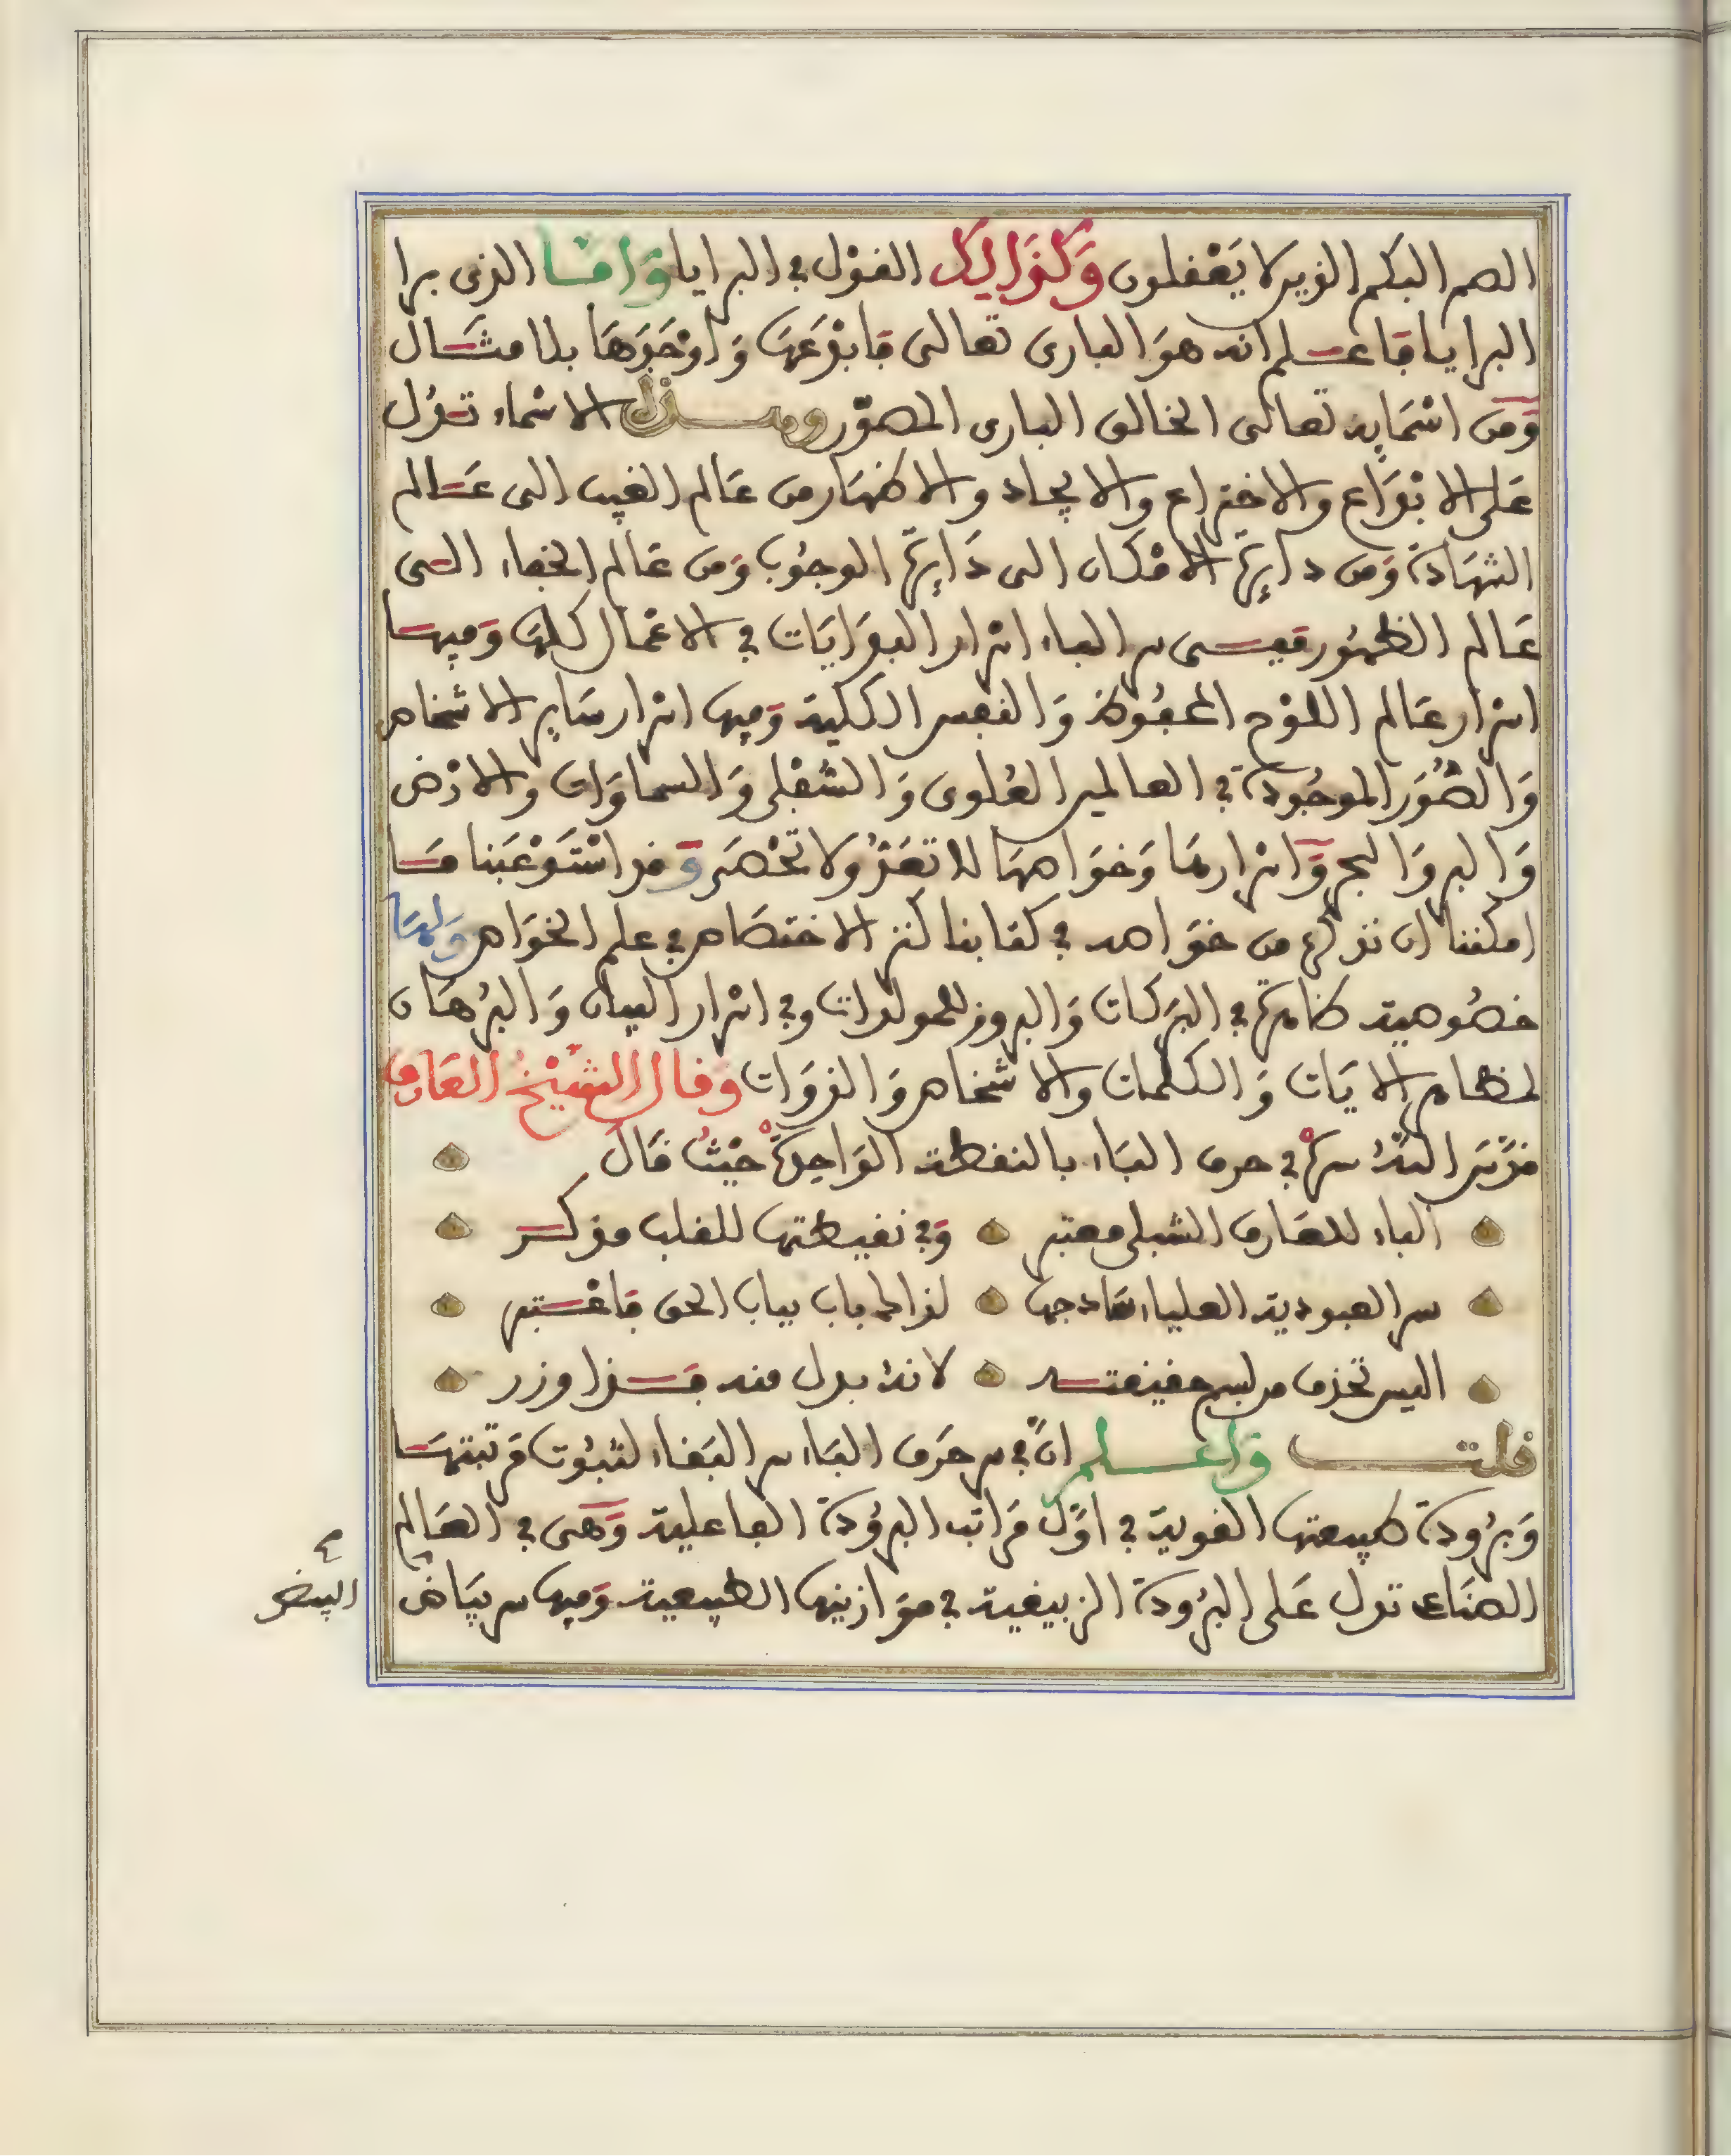 الصم البكم الذين لا يَعْقلون وَكَذَالِكَ القوْل في البرايا وَامَّا الذى برا
البرايا فاعلم انه هوَ البارى تعالى فابْدَعَهَا وَاوْجَدَهَا بلا مثَال
وَمن اسْمَايه تعالى الخالق البارى المصوّر وهذه الاسْماء تدُل
عَلى الابْدَاع والاختراع والايجاد والاظهَار من عَالم الغيب الى عَالم
الشهَادة وَمن دايرَة الامْكان الى دَايرَة الوجُوب وَمن عَالم الخفاء الى
عَالم الظهُور فهى سر الباء اسْرار البدَايَات في الاعْمال كلهَا وَفيها
اسْرار عَالم اللوْح المحفُوظ وَالنفس الكلية وَفيها اسْرار سَاير الاشخاص
وَالصُّوَر الموجُودة في العالمين العُلوى وَالسُّفلى وَالسماوَات وَالارْض
وَالبر وَالبحر وَاسْرارهَا وَخوَاصهَا لا تعَدُّ ولا تحْصَر وَقد اسْتَوْعَبنا مَا
امكننا ان نذكره من خوَاصه في كتابنا كنز الاختصَاص في علم الخوَاص وَلهَا
خصُوصية ظاهرَة في البرَكات وَالبروز للمولدات وفي اسْرار البيان وَالبُرهَان
لمظاهر الايَات وَالكلمات والاشخاص وَالذوَات وَقال الشيْخُ العَارف
قدَّسَ اللهُ سره في حرف البَاء بالنقطة الوَاحِدَة حَيْثُ قال
الباء للعَارف الشبلى معتبر وَفي نقيطتها للقلب مدكر
سر العبودية العلياء مَازجها لذا لما باب بباب الحق فاعْتبر
اليس تحذف من بسم حقيقته لانهُ بدل منه فذا وزر
قلت وَاعلم انَّ في سر حَرف البَاء سر البَقاء لثبُوت مَرتبتهَا
وَبرُودة طبيعتها القوية في اوَّل مَراتب البرُودة الفاعلية وَهى في العَالم
الصنَاعى تدل عَلى البرُودة الزيبقية في موَازينها الطبيعية وَفيها سر بيَاض
البيض